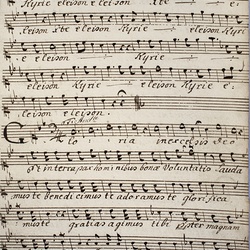 Kyrie eleison eleison xte e
leison xte eleison Kyrie eleison
e eleison Kyrie eleison Kyrie
e eleison eleison Kyrie e
leison eleison.
Gloria in excelsis Deo
et in terra pax hominibus bonæ Voluntatis lauda
mus te benedicimus te adoramus te glorifica
mus te gratias agimus tibi propter magnam